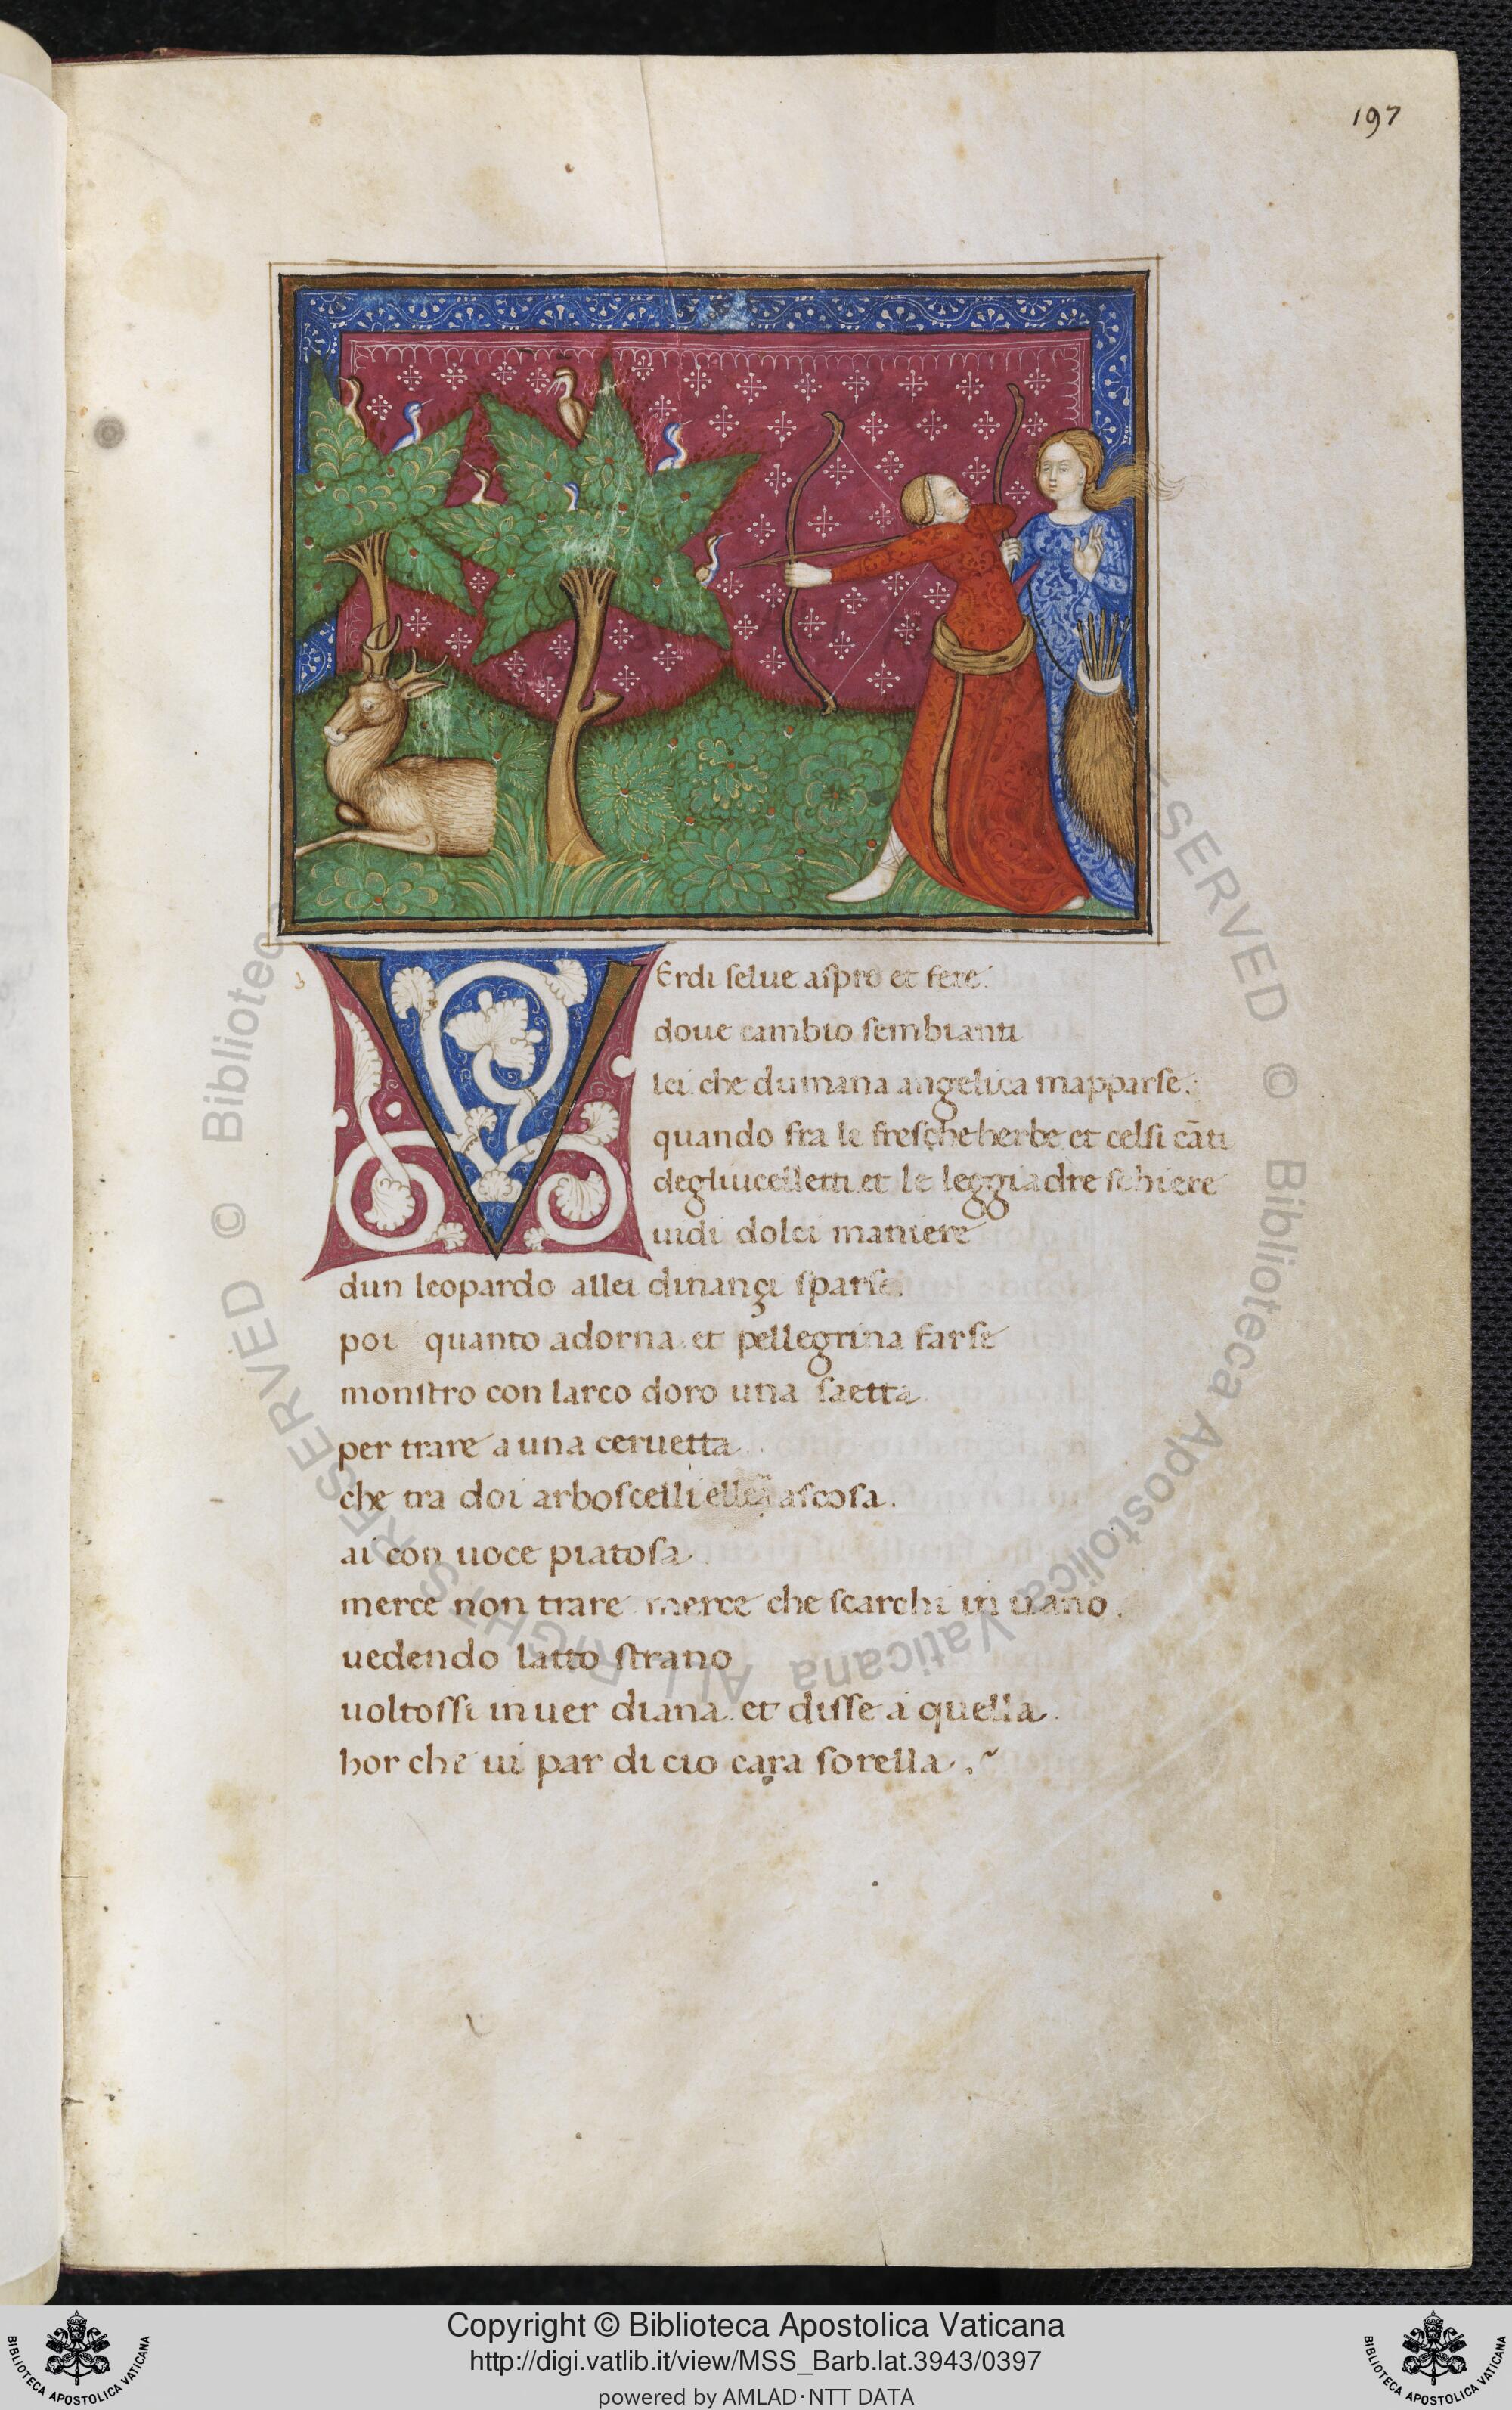 197
VErdi selue aspro et fere.
doue cambio sembianti
lei che dumana angelica mapparse.
quando fra le fresche herbe et celsi cāti
degliucelletti et le leggiadre schiere
uidi dolci maniere
dun leopardo allei dinançi sparse.
poi quanto adorna et pellegrina farse
monstro con larco doro una saetta
per trare a una ceruetta
che tra doi arboscelli ascosa.
ai con uoce piatosa
merce non trare merce che scarchi in uano.
uedendo latto strano
uoltossi inuer diana et disse a quella.
hor che ui par di cio cara sorella.
© Biblioteca Apostolica Vaticana ALL RIGHTS RESERVED © Biblioteca
Copyright © Biblioteca Apostolica Vaticana
http://digi.vatlib.it/view/MSS_Barb.lat.3943/0397
powered by AMLAD·NTT DATA
BIBLIOTECA APOSTOLICA VATICANA
BIBLIOTECA APOSTOLICA VATICANA